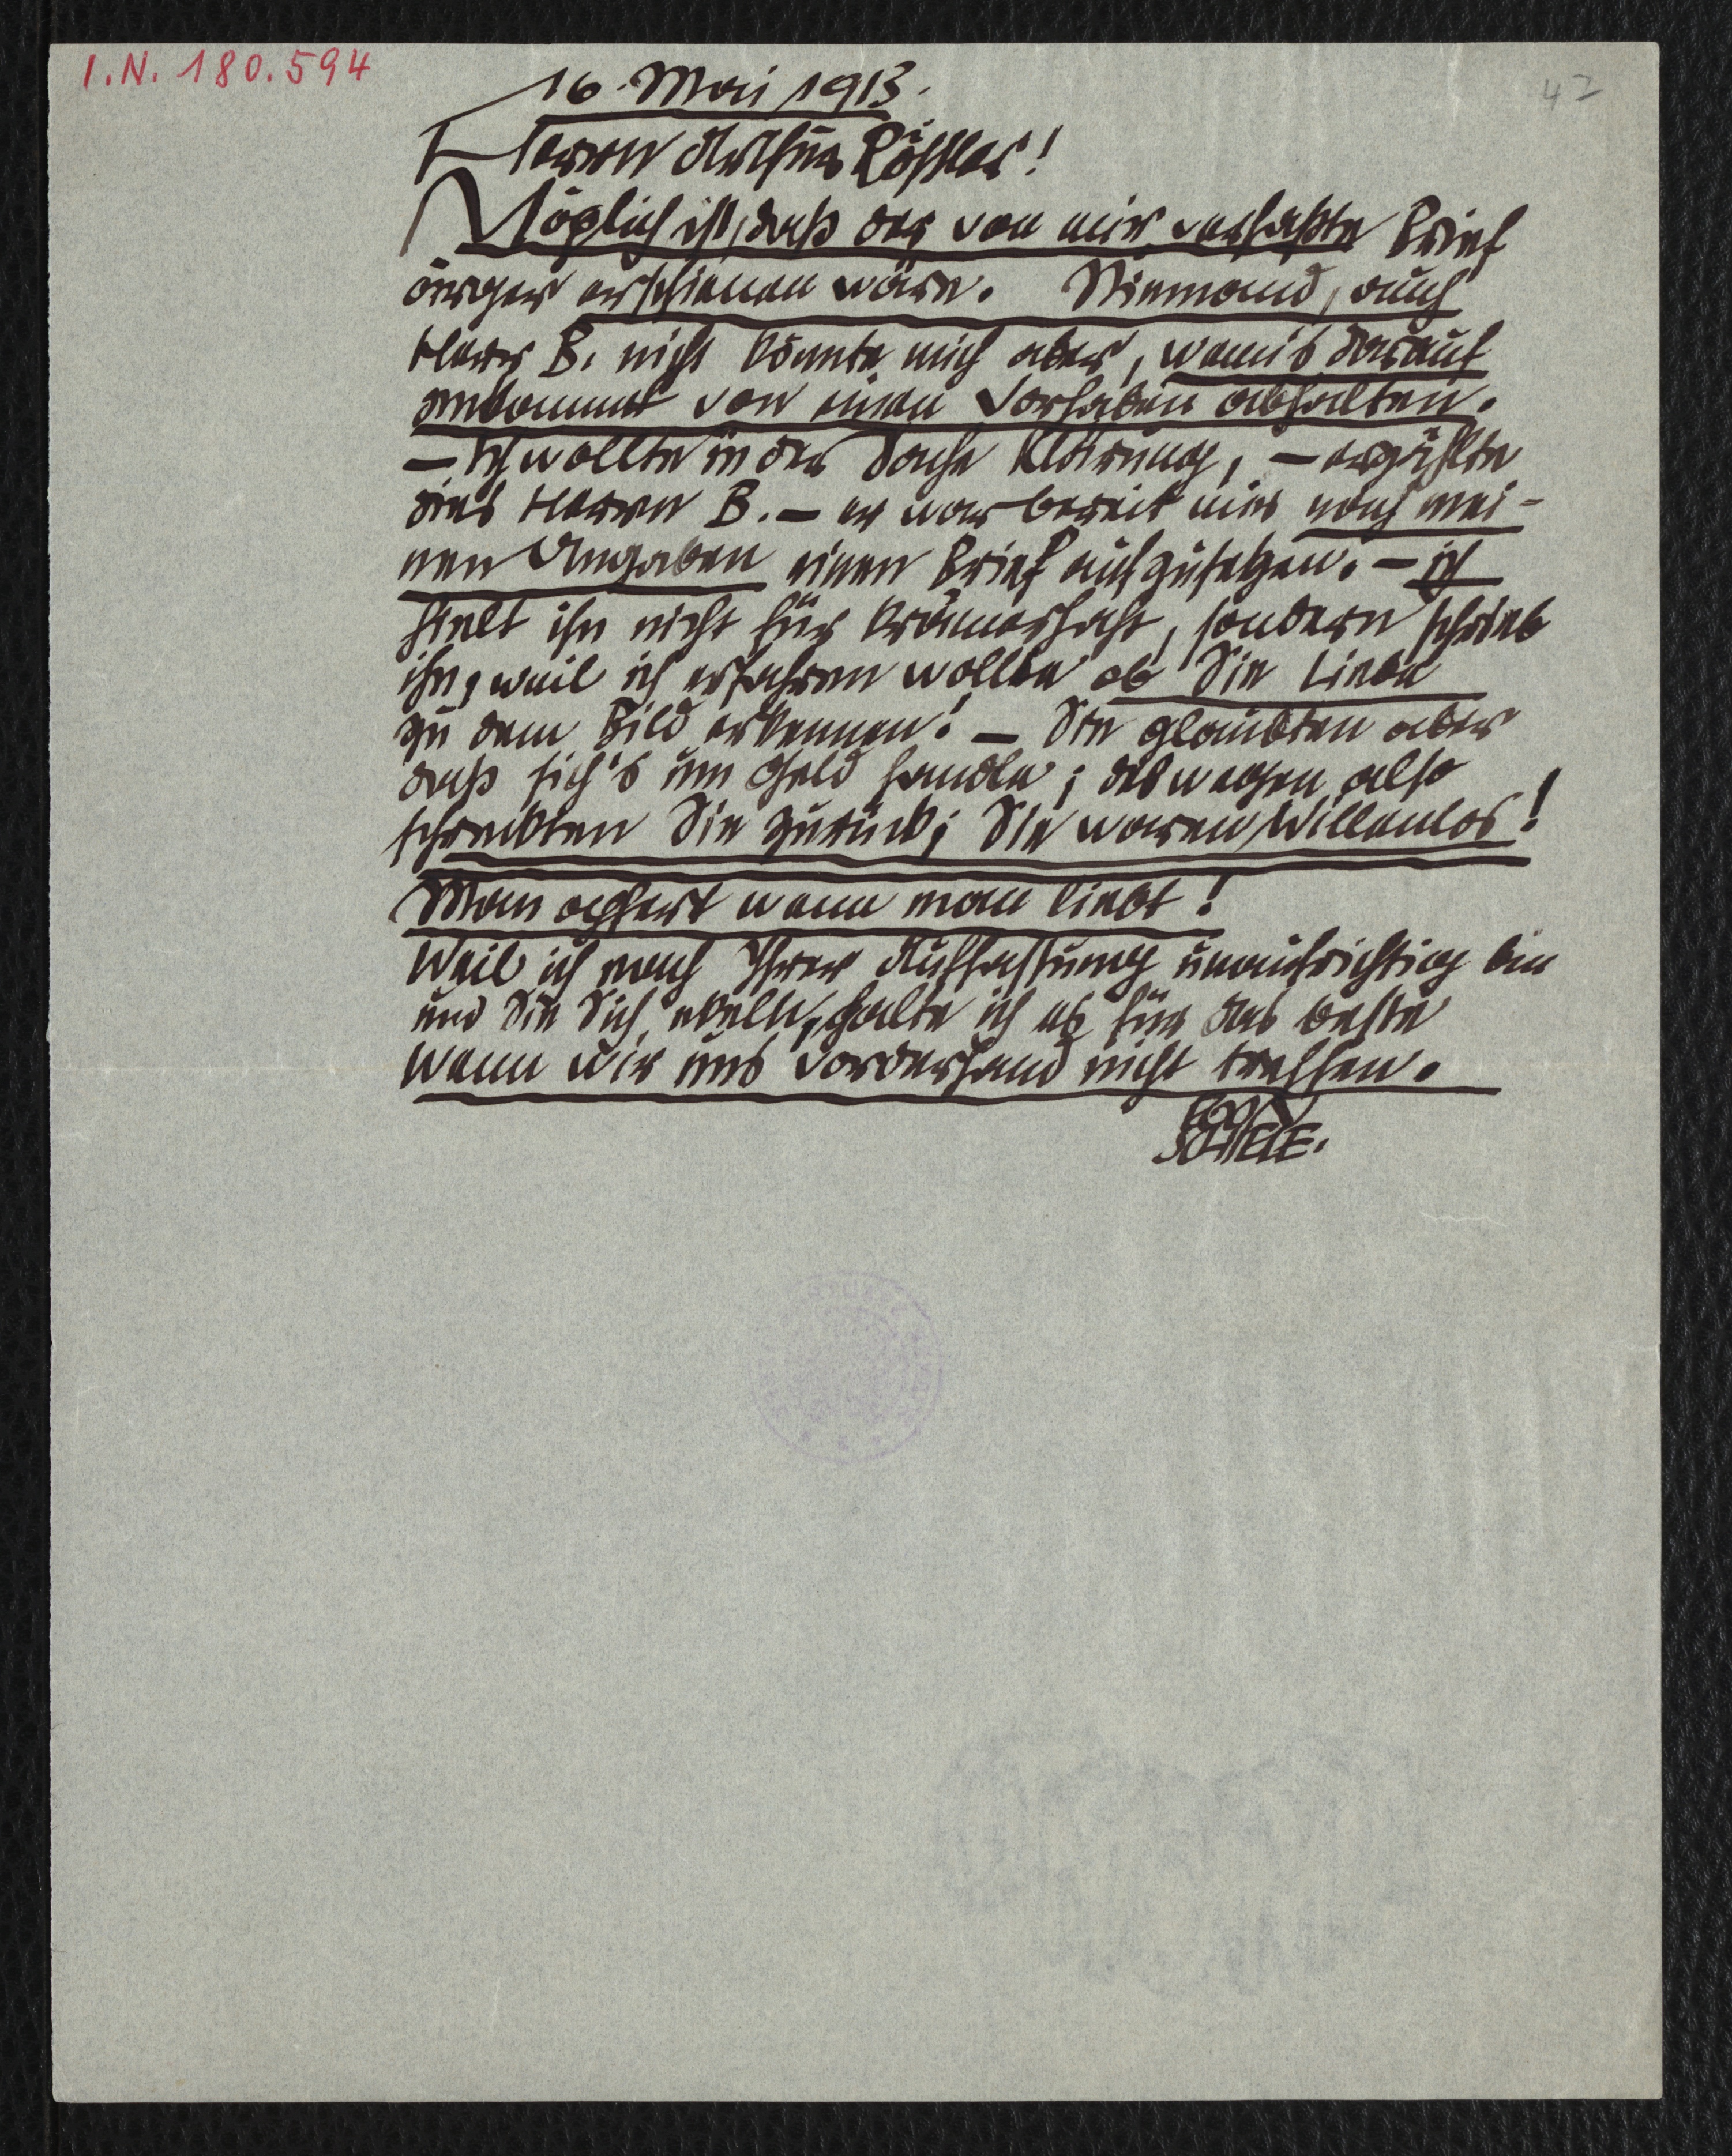 I.N. 180.594
42
16. Mai 1913.
Herrn Arthur Rößler!
Möglich ist, daß der von mir verfaßte Brief
ärger erschienen wäre. Niemand, auch
Herr B. nicht könnte mich aber, wenn's darauf
ankommt von einem Vorhaben abhalten.
– Ich wollte in der Sache Klärung, – erzählte
dies Herrn B. – er war bereit mir nach mei-
nen Angaben einen Brief aufzusetzen. – ich
hielt ihn nicht für krämerhaft, sondern schrieb
ihn, weil ich erfahren wollte ob Sie Liebe
zu dem Bild erkennen! – Sie glaubten aber
daß sich's um Geld handle; deswegen also
schreckten Sie zurück; Sie waren Willenlos!
Man opfert wenn man liebt!
Weil ich nach Ihrer Auffassung unaufrichtig bin
und Sie Sich ekelte, halte ich es für das beste
wenn wir uns vorderhand nicht treffen.
EGON
SCHIELE.